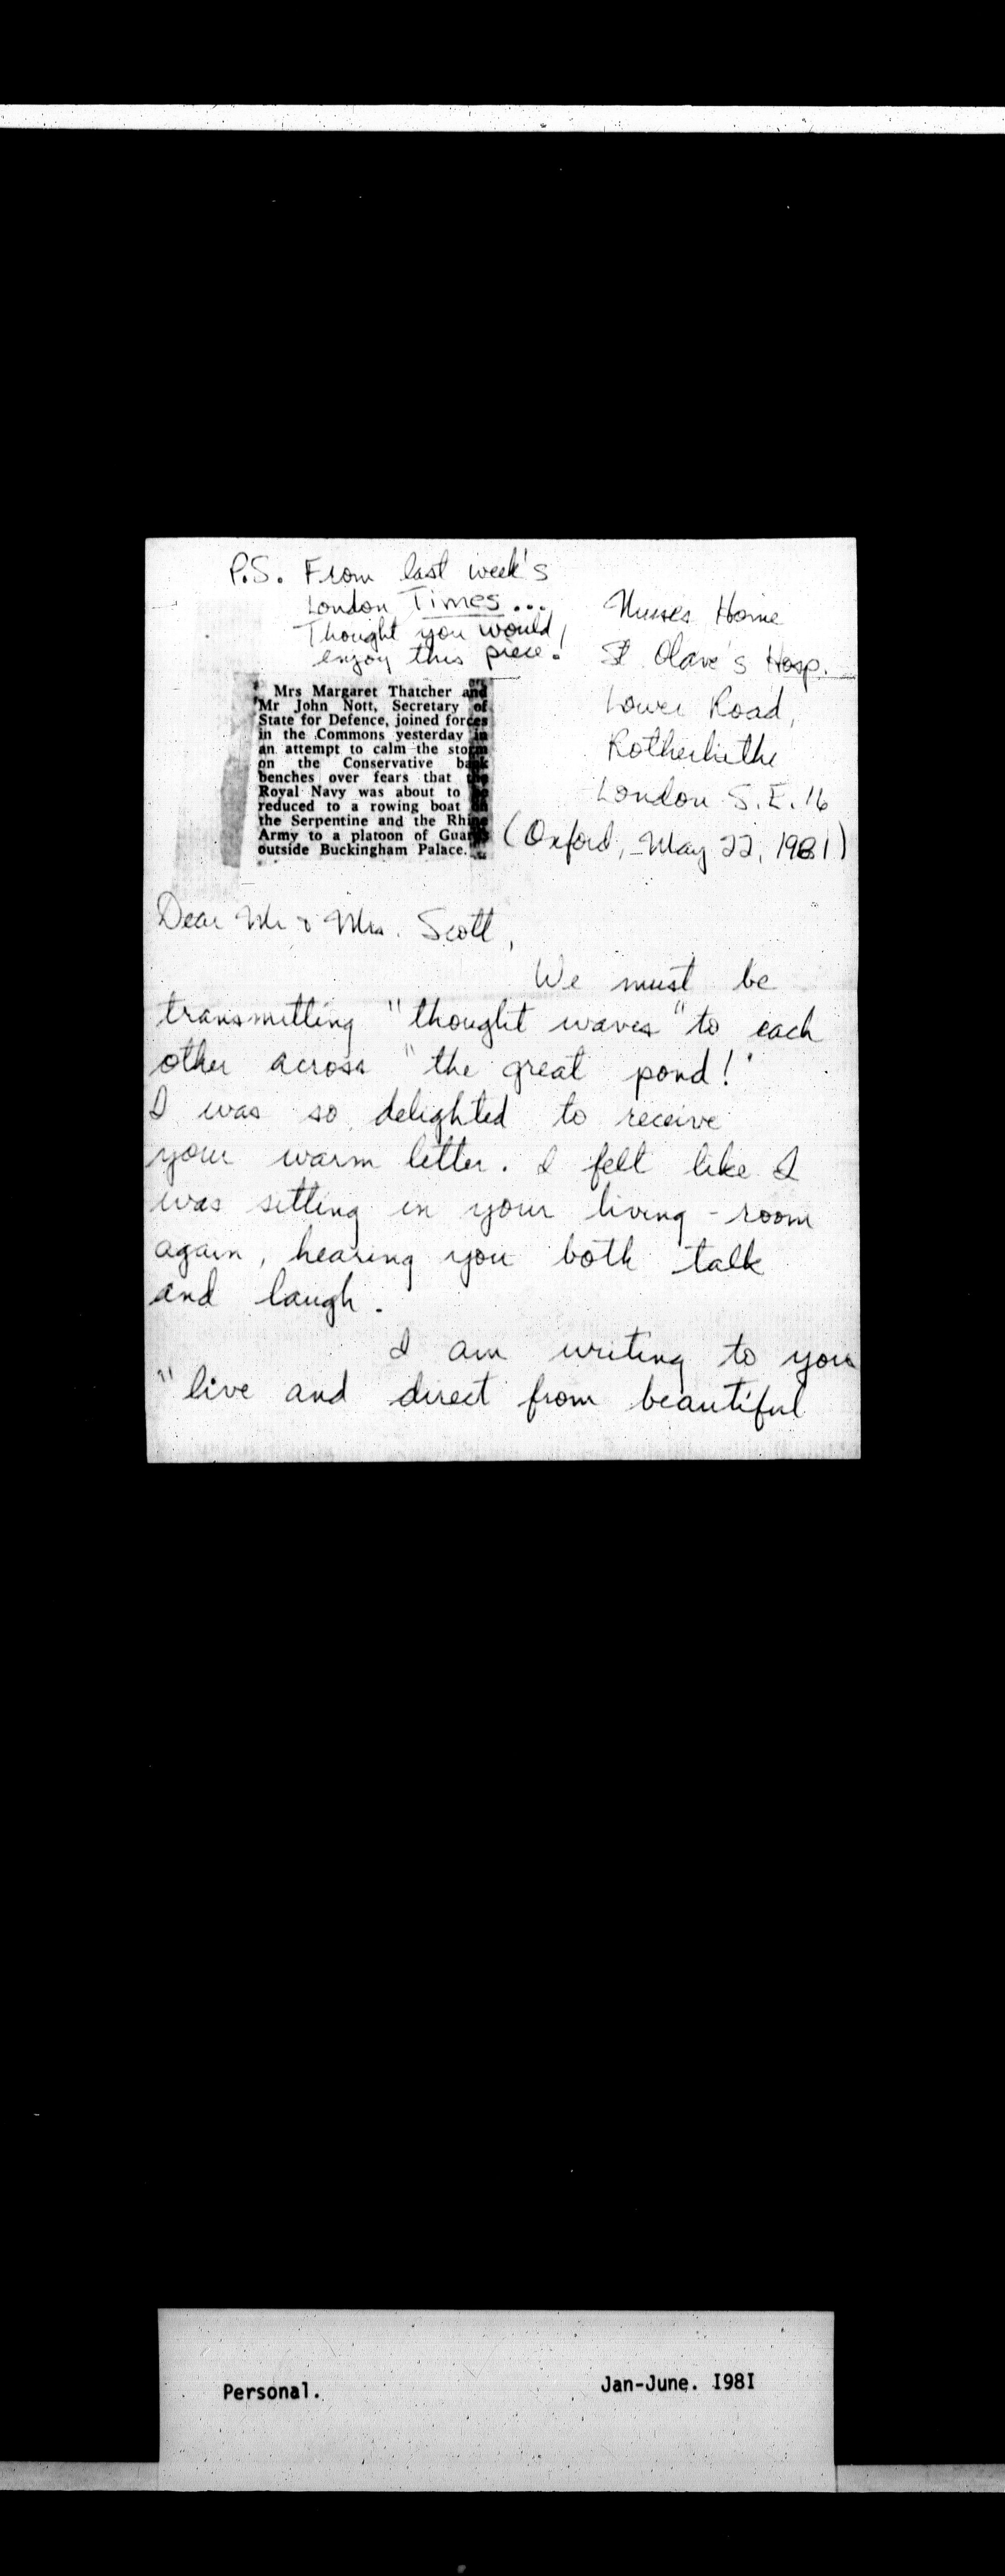 P.S. From last week's
London Times...
Thought you would
enjoy this piece!
Mrs Margaret Thatcher and
Mr John Nott, Secretary of
State for Defence, joined forces
in the Commons yesterday in
an attempt to calm the storm
on the Conservative back
benches over fears that the
Royal Navy was about to be
reduced to a rowing boat on
the Serpentine and the Rhine
Army to a platoon of Guards
outside Buckingham Palace.
Nurses Home
St. Olave's Hosp.
Lower Road,
Rotherhithe
London S.E.16
(Oxford, May 22, 1981)
Dear Mr & Mrs. Scott,
We must be
transmitting "thought waves" to each
other across "the great pond!"
I was so delighted to receive
your warm letter. I felt like I
was sitting in your living-room
again, hearing you both talk
and laugh.
I am writing to you
"live and direct from beautiful
Personal.
Jan-June. I98I